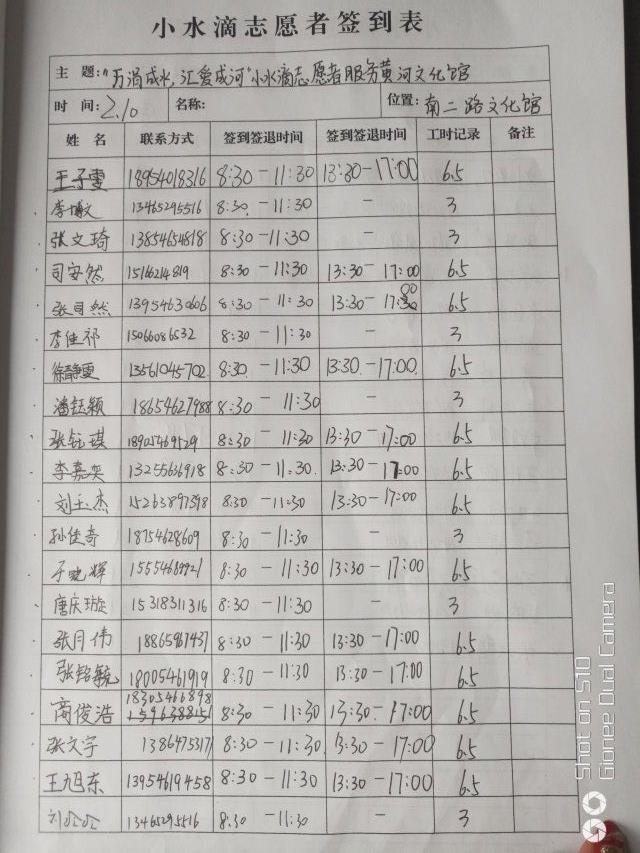 小水滴志愿者签到表
主 题:"万涓成水,汇爱成河"小水滴志愿者服务黄河文化馆
时 间: 2.10 名称: 位置: 南二路文化馆
姓 名 联系方式 签到签退时间 签到签退时间 工时记录 备注
王子雯 18954018316 8:30-11:30 13:30-17:00 6.5
李博文 13465295516 8:30-11:30 - 3
张文琦 13854654818 8:30-11:30 - 3
司安然 15146214819 8:30-11:30 13:30-17:00 6.5
张司然 13954630606 8:30-11:30 13:30-17:00 6.5
李佳祁 15066086532 8:30-11:30 - 3
徐静雯 13561045702 8:30-11:30 13:30-17:00 6.5
潘钰颖 18654627988 8:30-11:30 - 3
张钰琪 18905469529 8:30-11:30 13:30-17:00 6.5
李嘉奕 13255636918 8:30-11:30 13:30-17:00 6.5
刘玉杰 15263897598 8:30-11:30 13:30-17:00 6.5
孙佳奇 18754628609 8:30-11:30 - 3
于晓辉 8:30-11:30 13:30-17:00 6.5
唐庆璇 15318311316 8:30-11:30 - 3
张月伟 18865967437 8:30-11:30 13:30-17:00 6.5
张铭毓 18005461919 8:30-11:30 13:30-17:00 6.5
18305466898
商俊浩 8:30-11:30 13:30-17:00 6.5
张文宇 13864753171 8:30-11:30 13:30-17:00 6.5
王旭东 13954619458 8:30-11:30 13:30-17:00 6.5
13465295516 8:30-11:30 - 3
Shot on S10
Gionee Dual Camera